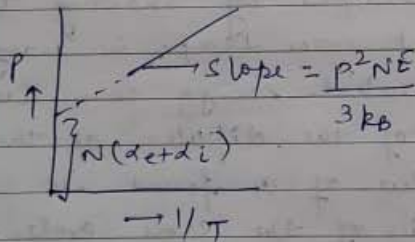 P
↑
→ slope = p²NE
3kB
N(αe+αi)
→ 1/T